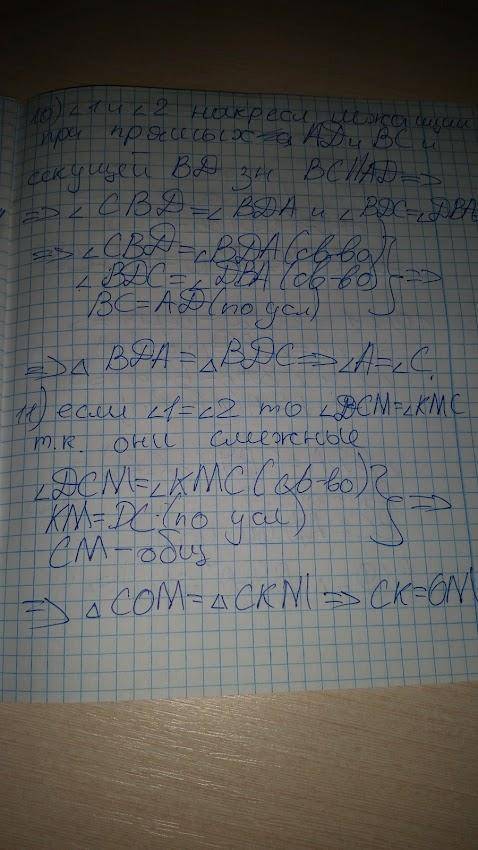 10) ∠1 и ∠2 накресл лежащии
при прямых a AD и BC и
секущей BD зн BC||AD =>
=> ∠CBD=∠BDA и ∠BDC=∠DBA
=> ∠CBD=∠BDA (св-во)
∠BDC=∠DBA (св-во) } =>
BC=AD (по усл)
=> △BDA=△BDC => ∠A=∠C.
11) если ∠1=∠2 то ∠DCM=∠KMC
т.к. они смежные
∠DCM=∠KMC (св-во)
KM=DC (по усл) } =>
CM-общ
=> △COM=△CKM => CK=OM